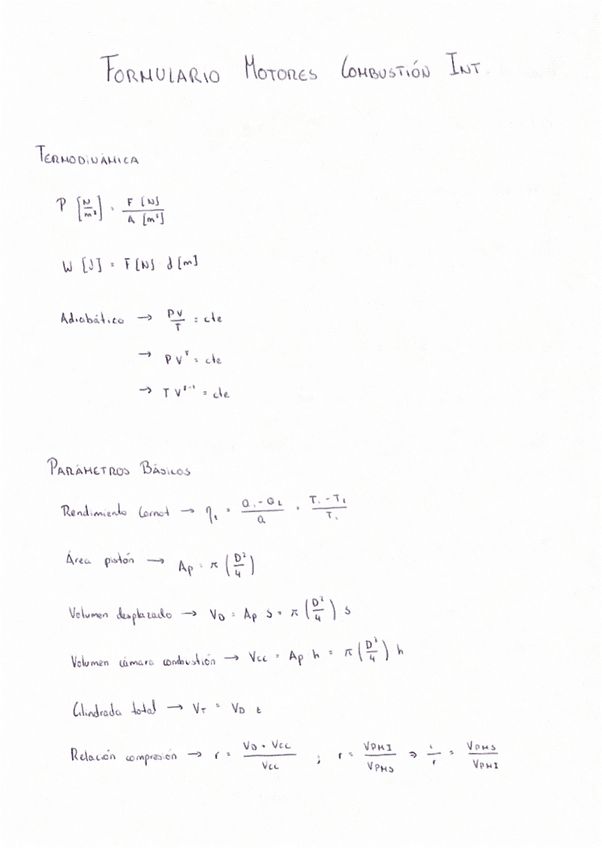 FORMULARIO MOTORES COMBUSTIÓN INT.
TERMODINÁMICA
P [N/m²] = F [N] / A [m²]
W [J] = F [N] d [m]
Adiabático → PV/T = cte
→ P V^γ = cte
→ T V^(γ-1) = cte
PARÁMETROS BÁSICOS
Rendimiento Carnot →
Área pistón → Ap = π (D²/4)
Volumen desplazado → VD = Ap s = π (D²/4) s
Volumen cámara combustión → Vcc = Ap h = π (D²/4) h
Cilindrada total → VT = VD z
Relación compresión → r = (VD + Vcc) / Vcc ; r = VPMI / VPMS ⇒ 1/r = VPMS / VPMI